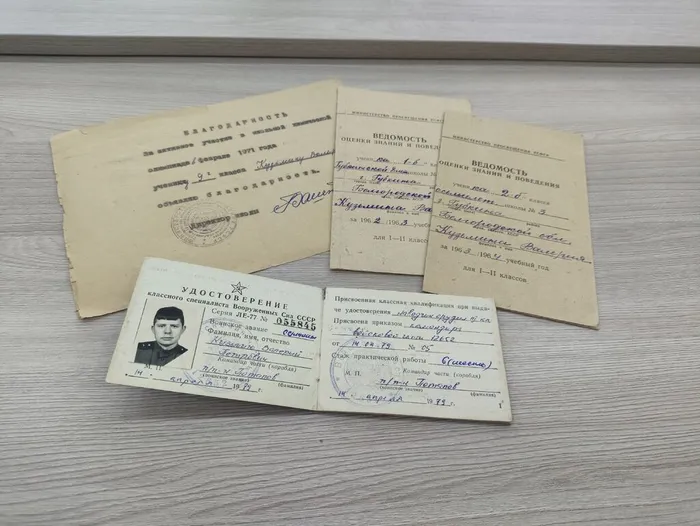 БЛАГОДАРНОСТЬ
За активное участие в школьной
олимпиаде февраля 1971 года
ученику 9 класса Кузьмину
объявить благодарность.
Директор школы
МИНИСТЕРСТВО ПРОСВЕЩЕНИЯ РСФСР
ВЕДОМОСТЬ
ОЦЕНКИ ЗНАНИЙ И ПОВЕДЕНИЯ
учени ка 1-б
г. Губкина
Белгородской
Кузьмина Ва
за 1962/1963 учебный
для I—II классов
МИНИСТЕРСТВО ПРОСВЕЩЕНИЯ РСФСР
ВЕДОМОСТЬ
ОЦЕНКИ ЗНАНИЙ И ПОВЕДЕНИЯ
учени ка 2-б класса
школы № 3
г. Губкина
Белгородской обл.
Кузьмина Валерия
за 1963/1964 учебный год
для I—II классов
УДОСТОВЕРЕНИЕ
классного специалиста Вооруженных Сил СССР
Серия ЛЕ-77 № 055845
Воинское звание
Фамилия, имя, отчество
Петрович
Командир части (корабля)
М. П. п/п-к Потапов
(воинское звание) (фамилия)
14 апреля 1979 г.
Присвоенная классная квалификация при выдаче
удостоверения
Присвоена приказом командира
войсковой части
от 14.04.79 № 65
Стаж практической работы 6
Командир части (корабля)
М. П. п/п-к Потапов
(воинское звание) (фамилия)
14 апреля 1979 г.
1